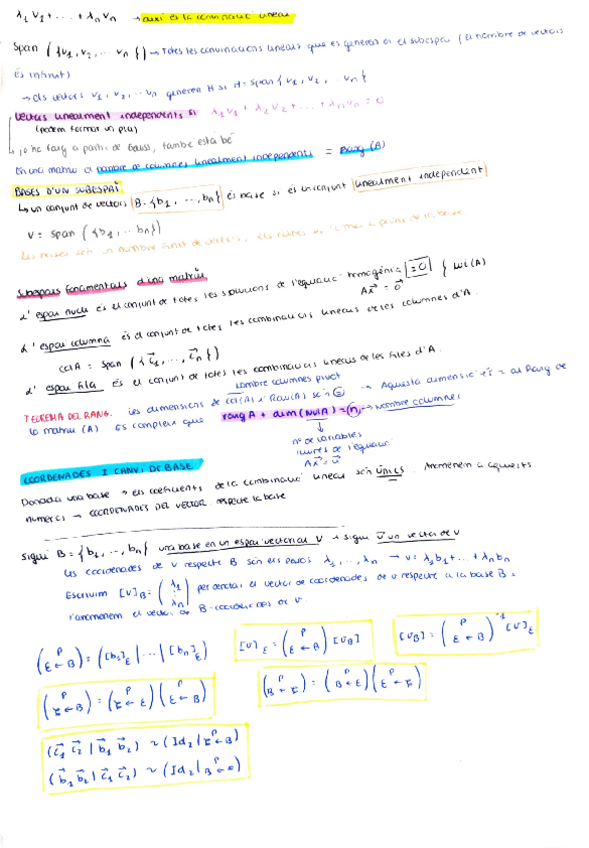 λ₁ v₁ + ... + λn vn → això és la combinació lineal
Span ({v₁, v₂, ... vn}) → Totes les combinacions lineals que es generen en el subespai (el nombre de vectors
és infinit)
→ els vectors v₁, v₂, ... vn generen H si H = Span {v₁, v₁, ... vn}
Vectors linealment independents si λ₁v₁ + λ₂v₂ + ... + λnvn = 0
(poden formar un pla)
→ jo ho faig a partir de Gauss, també està bé
En una matriu el nombre de columnes linealment independents = Rang (A)
BASES D'UN SUBESPAI
↳ un conjunt de vectors B = {b₁, ..., bn} és base si és un conjunt linealment independent
V = Span ({b₁, ... bn})
Les bases són un nombre finit de vectors,
Subespais fonamentals d'una matriu
L'espai nul és el conjunt de totes les solucions de l'equació homogènia (=0) { Nul(A)
Ax⃗ = 0⃗
L'espai columna és el conjunt de totes les combinacions lineals de les columnes d'A.
Col A = Span ({c⃗₁, ..., c⃗n})
L'espai fila és el conjunt de totes les combinacions lineals de les files d'A.
nombre columnes pivot
TEOREMA DEL RANG. Les dimensions de Col(A) i Row(A) són → Aquesta dimensió és = al Rang de
la matriu (A) Es compleix que rang A + dim(Nul A) = n → nombre columnes
nº de variables
lliures de l'equació
Ax⃗ = 0⃗
COORDENADES I CANVI DE BASE
Donada una base → els coeficients de la combinació lineal són ÚNICS. Anomenem a aquests
números → COORDENADES DEL VECTOR respecte la base
Sigui B = {b₁, ..., bn} una base en un espai vectorial V i sigui v un vector de V
Les coordenades de v respecte B són els pesos λ₁, ..., λn → v = λ₁b₁ + ... + λnbn
Escrivim [v]B = (λ₁ ⋮ λn) per denotar el vector de coordenades de v respecte a la base B =
l'anomenem el vector de B-coordenades de v.
(P E←B) = ([b₁]E | ... | [bn]E)
[v]E = (P E←B) [vB]
[vB] = (P E←B)⁻¹ [v]E
(P F←B) = (P F←E) (P E←B)
(P B←F) = (P B←E) (P E←F)
(c⃗₁ c⃗₂ | b⃗₁ b⃗₂) ~ (Id₂ | P ←B)
(b⃗₁ b⃗₂ | c⃗₁ c⃗₂) ~ (Id₂ | P B←)